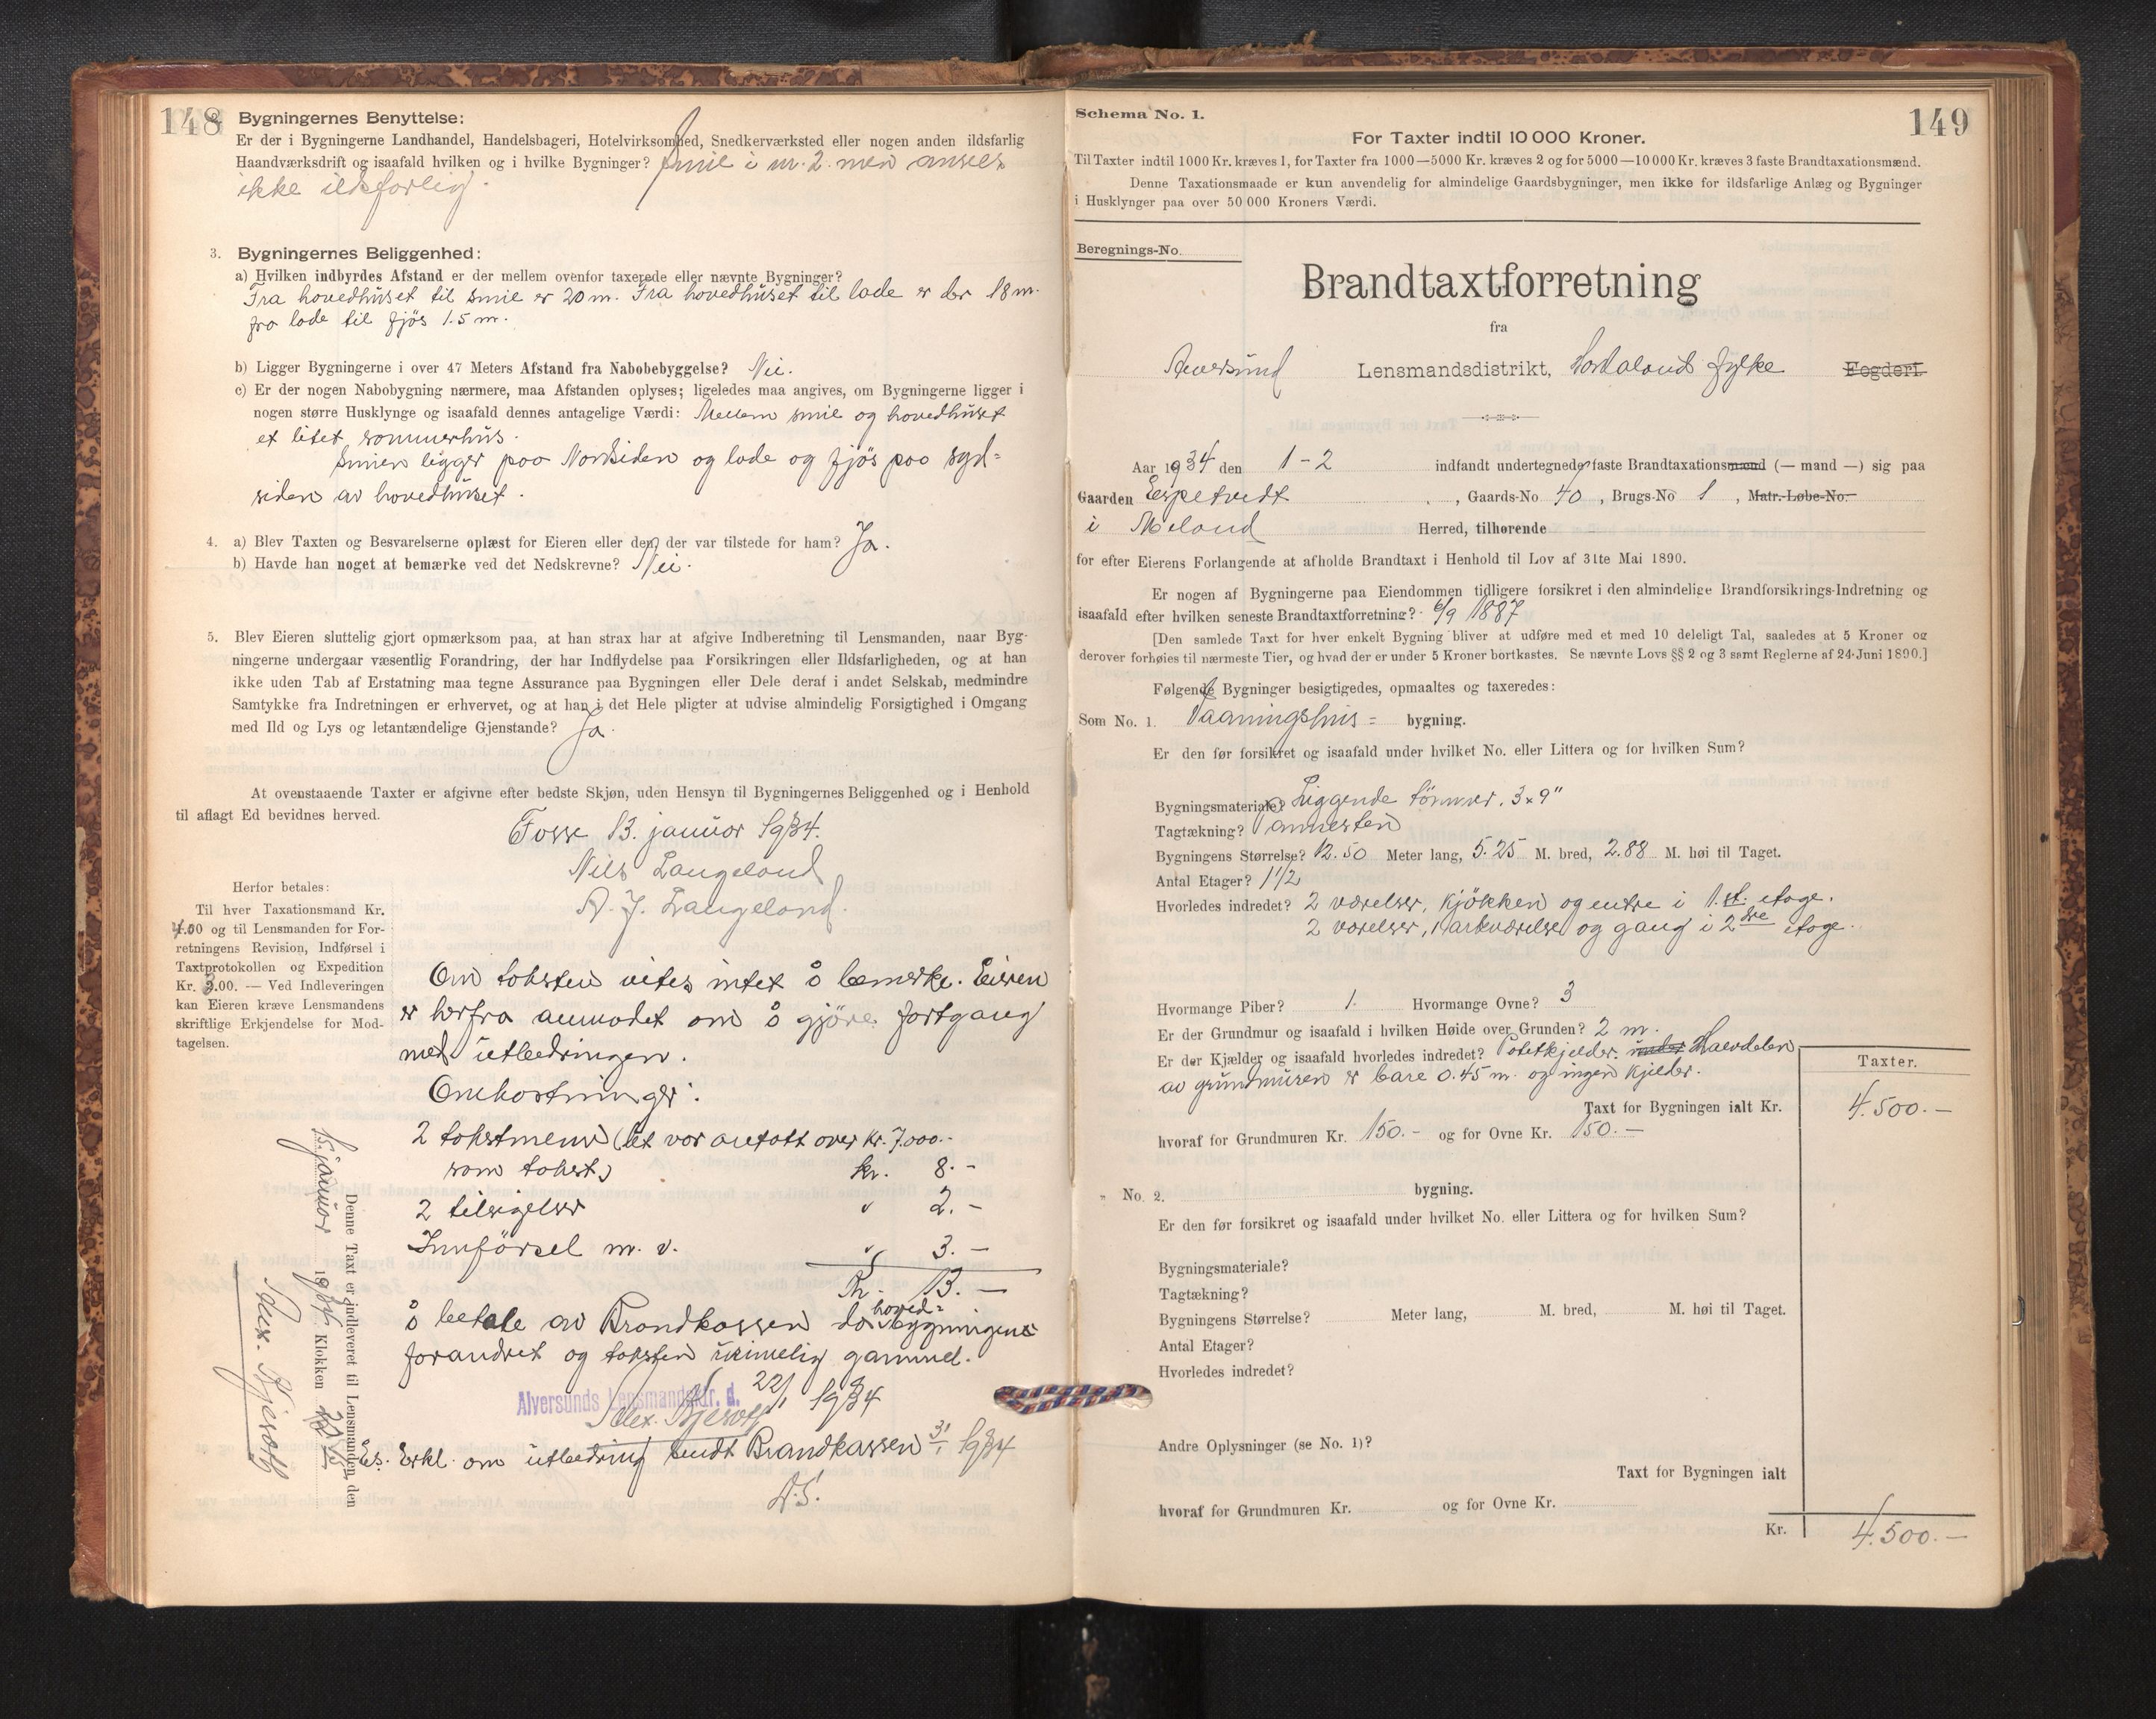 148
Bygningernes Benyttelse:
Er der i Bygningerne Landhandel, Handelsbageri, Hotelvirksomhed, Snedkerværksted eller nogen anden ildsfarlig
Haandværksdrift og isaafald hvilken og i hvilke Bygninger? Smie i nr. 2. men ansees
ikke ildsfarlig.
3. Bygningernes Beliggenhed:
a) Hvilken indbyrdes Afstand er der mellem ovenfor taxerede eller nævnte Bygninger?
Fra hovedhuset til smie er 20 m. Fra hovedhuset til lade er der 18 m.
fra lade til fjös 1.5 m.
b) Ligger Bygningerne i over 47 Meters Afstand fra Nabobebyggelse? Nei.
c) Er der nogen Nabobygning nærmere, maa Afstanden oplyses; ligeledes maa angives, om Bygningerne ligger i
nogen større Husklynge og isaafald dennes antagelige Værdi: Mellem smie og hovedhuset
et litet sommerhus.
Smien ligger paa Nordsiden og lade og fjös paa syd=
siden av hovedhuset.
4. a) Blev Taxten og Besvarelserne oplæst for Eieren eller den, der var tilstede for ham? Ja.
b) Havde han noget at bemærke ved det Nedskrevne? Nei.
5. Blev Eieren sluttelig gjort opmærksom paa, at han strax har at afgive Indberetning til Lensmanden, naar Byg-
ningerne undergaar væsentlig Forandring, der har Indflydelse paa Forsikringen eller Ildsfarligheden, og at han
ikke uden Tab af Erstatning maa tegne Assurance paa Bygningen eller Dele deraf i andet Selskab, medmindre
Samtykke fra Indretningen er erhvervet, og at han i det Hele pligter at udvise almindelig Forsigtighed i Omgang
med Ild og Lys og letantændelige Gjenstande? Ja.
At ovenstaaende Taxter er afgivne efter bedste Skjøn, uden Hensyn til Bygningernes Beliggenhed og i Henhold
til aflagt Ed bevidnes herved.
Fosse 13. januar 1934.
Nils Langeland
A. J. Langeland.
Herfor betales:
Til hver Taxationsmand Kr.
4.00 og til Lensmanden for For-
retningens Revision, Indførsel i
Taxtprotokollen og Expedition
Kr. 3.00. — Ved Indleveringen
kan Eieren kræve Lensmandens
skriftlige Erkjendelse for Mod-
tagelsen.
Om taksten vites intet å bemerke. Eieren
er herfra anmodet om å gjöre fortgang
med utbedringen.
Omkostninger:
2 takstmenn (det var antatt over kr. 7.000.-
som takst) kr. 8.-
2 tilsigelser " 2.-
Innförsel m. v. " 3.-
Kr. 13.-
å betale av Brandkassen da hoved=bygningen
forandret og taksten rimelig gammel.
Alversunds Lensmandsktr. d. 22/1 1934
Es. Erkl. om utbedring sendt Brandkassen 31/1 1934
Denne Taxt er indleveret til Lensmanden, den
15. januar 1934 Klokken
149
Schema No. 1.
For Taxter indtil 10 000 Kroner.
Til Taxter indtil 1000 Kr. kræves 1, for Taxter fra 1000—5000 Kr. kræves 2 og for 5000—10 000 Kr. kræves 3 faste Brandtaxationsmænd.
Denne Taxationsmaade er kun anvendelig for almindelige Gaardsbygninger, men ikke for ildsfarlige Anlæg og Bygninger
i Husklynger paa over 50 000 Kroners Værdi.
Beregnings-No.
Brandtaxtforretning
fra
Alversund Lensmandsdistrikt, Hordaland fylke Fogderi.
Aar 1934 den 1-2 indfandt undertegnede faste Brandtaxationsmænd (— mand —) sig paa
Gaarden Espetvedt, Gaards-No 40, Brugs-No 1, Matr.-Løbe-No.
i Meland Herred, tilhørende
for efter Eierens Forlangende at afholde Brandtaxt i Henhold til Lov af 31te Mai 1890.
Er nogen af Bygningerne paa Eiendommen tidligere forsikret i den almindelige Brandforsikrings-Indretning og
isaafald efter hvilken seneste Brandtaxtforretning? 6/9 1887
[Den samlede Taxt for hver enkelt Bygning bliver at udføre med et med 10 deleligt Tal, saaledes at 5 Kroner og
derover forhøies til nærmeste Tier, og hvad der er under 5 Kroner bortkastes. Se nævnte Lovs §§ 2 og 3 samt Reglerne af 24 Juni 1890.]
Følgende Bygninger besigtigedes, opmaaltes og taxeredes:
Som No. 1. Vaaningshus= bygning.
Er den før forsikret og isaafald under hvilket No. eller Littera og for hvilken Sum?
Bygningsmateriale? Liggende tömmer. 3x9"
Tagtækning? Pannesten
Bygningens Størrelse? 12.50 Meter lang, 5.25 M. bred, 2.88 M. høi til Taget.
Antal Etager? 1 1/2
Hvorledes indredet? 2 værelser, kjökken og entre i 1.st. etage.
2 værelser, markværelse og gang i 2dre etage.
Hvormange Piber? 1. Hvormange Ovne? 3
Er der Grundmur og isaafald i hvilken Høide over Grunden? 2 m.
Er der Kjælder og isaafald hvorledes indredet? Potetkjelder. under Halvdelen
av grundmuren er bare 0.45 m. og ingen kjelder.
Taxter.
Taxt for Bygningen ialt Kr. 4.500.-
hvoraf for Grundmuren Kr. 150.- og for Ovne Kr. 150.-
" No. 2. bygning.
Er den før forsikret og isaafald under hvilket No. eller Littera og for hvilken Sum?
Bygningsmateriale?
Tagtækning?
Bygningens Størrelse? Meter lang, M. bred, M. høi til Taget.
Antal Etager?
Hvorledes indredet?
Andre Oplysninger (se No. 1)?
Taxt for Bygningen ialt
hvoraf for Grundmuren Kr. og for Ovne Kr.
Kr. 4.500.-